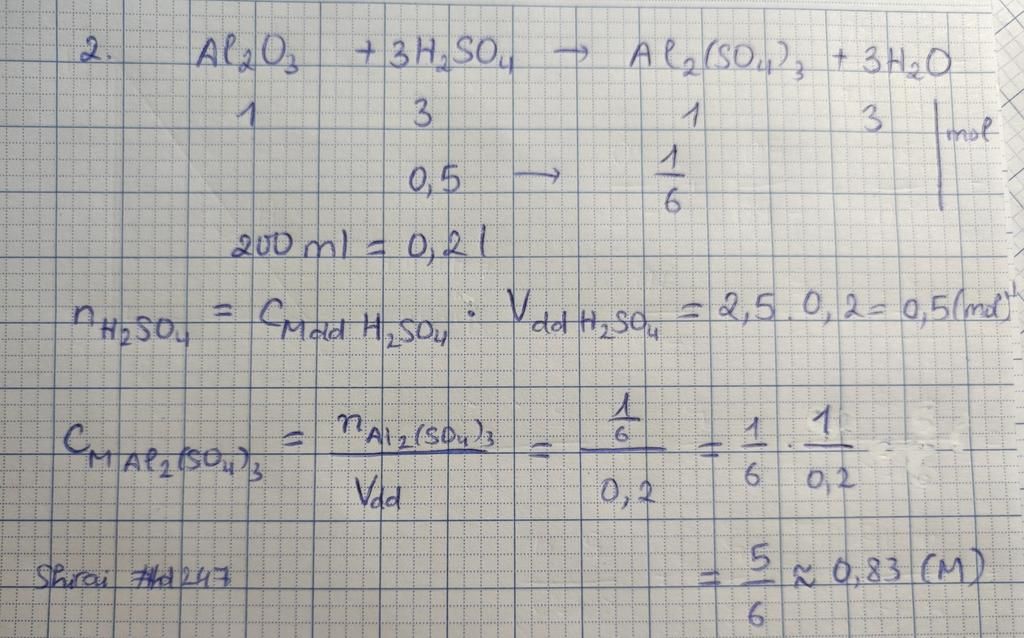 2. Al₂O₃ + 3H₂SO₄ → Al₂(SO₄)₃ + 3H₂O
1 3 1 3 | mol
0,5 → 1/6
200 ml = 0,2 l
n H₂SO₄ = C M dd H₂SO₄ . V dd H₂SO₄ = 2,5 . 0,2 = 0,5 (mol)
C M Al₂(SO₄)₃ = n Al₂(SO₄)₃ / Vdd = (1/6) / 0,2 = 1/6 . 1/0,2
= 5/6 ≈ 0,83 (M)